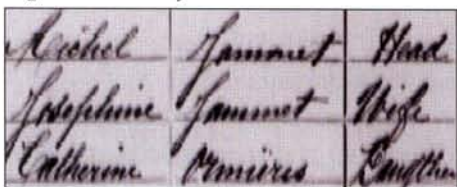 Michel Jammet Head
Josephine Jammet Wife
Catherine Ormières Daughter